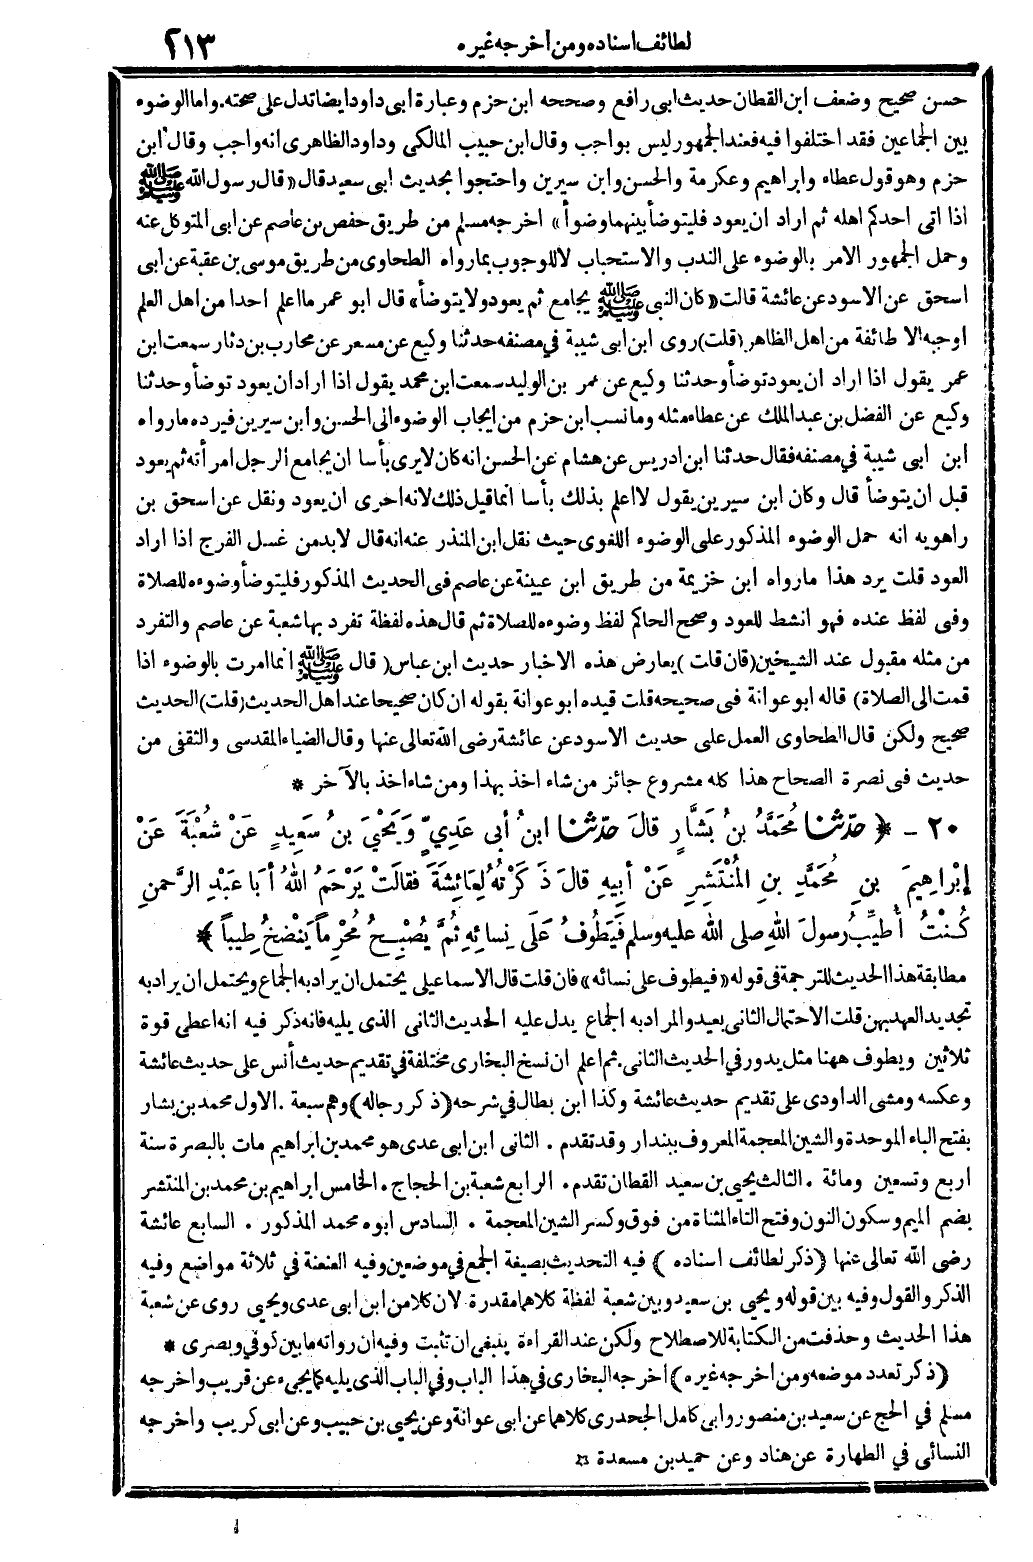 لطائف اسناده ومن أخرجه غيره
٢١٣
حسن صحيح وضعف ابن القطان حديث ابى رافع وصححه ابن حزم وعبارة ابى داود ايضا تدل على صحته. واما الوضوء
بين الجماعين فقد اختلفوا فيه فعند الجمهور ليس بواجب وقال ابن حبيب المالكى وداود الظاهرى انه واجب وقال ابن
حزم وهو قول عطاء وابراهيم وعكرمة والحسن وابن سيرين واحتجوا بحديث ابى سعيد قال «قال رسول الله ﷺ
اذا اتى احدكم اهله ثم اراد ان يعود فليتوضأ بينهما وضوأ» اخرجه مسلم من طريق حفص بن عاصم عن ابى المتوكل عنه
وحمل الجمهور الامر بالوضوء على الندب والاستحباب لا للوجوب بما رواه الطحاوى من طريق موسى بن عقبة عن ابى
اسحق عن الاسود عن عائشة قالت «كان النبى ﷺ يجامع ثم يعود ولا يتوضأ» قال ابو عمر ما اعلم احدا من اهل العلم
اوجبه الا طائفة من اهل الظاهر (قلت) روى ابن ابى شيبة في مصنفه حدثنا وكيع عن مسعر عن محارب بن دثار سمعت ابن
عمر يقول اذا اراد ان يعود توضأ وحدثنا وكيع عن عمر بن الوليد سمعت ابن محمد يقول اذا اراد ان يعود توضأ وحدثنا
وكيع عن الفضل بن عبد الملك عن عطاء مثله وما نسب ابن حزم من إيجاب الوضوء الى الحسن وابن سيرين فيرده ما رواه
ابن ابى شيبة في مصنفه فقال حدثنا ابن ادريس عن هشام عن الحسن انه كان لا يرى بأسا ان يجامع الرجل امرأته ثم يعود
قبل ان يتوضأ قال وكان ابن سيرين يقول لا اعلم بذلك بأسا انما قيل ذلك لانه احرى ان يعود ونقل عن اسحق بن
راهويه انه حمل الوضوء المذكور على الوضوء اللغوى حيث نقل ابن المنذر عنه انه قال لا بد من غسل الفرج اذا اراد
العود قلت يرد هذا ما رواه ابن خزيمة من طريق ابن عيينة عن عاصم فى الحديث المذكور فليتوضأ وضوءه للصلاة
وفى لفظ عنده فهو انشط للعود وصحح الحاكم لفظ وضوءه للصلاة ثم قال هذه لفظة تفرد بها شعبة عن عاصم والتفرد
من مثله مقبول عند الشيخين (فان قات) يعارض هذه الاخبار حديث ابن عباس (قال ﷺ انما امرت بالوضوء اذا
قمت الى الصلاة) قاله ابو عوانة فى صحيحه قلت قيده ابو عوانة بقوله ان كان صحيحا عند اهل الحديث (قلت) الحديث
صحيح ولكن قال الطحاوى العمل على حديث الاسود عن عائشة رضى الله تعالى عنها وقال الضياء المقدسى والثقفى من
حديث فى نصرة الصحاح هذا كله مشروع جائز من شاء اخذ بهذا ومن شاء اخذ بالآخر *
٢٠ - ﴿ حدّثنا مُحَمَّدُ بنُ بَشَّارٍ قالَ حدّثنا ابنُ أبى عَدِيٍّ وَيَحْيَ بنُ سَعِيدٍ عَنْ شُعْبَةَ عَنْ
إبْراهِيمَ بنِ مُحَمَّدِ بنِ المُنْتَشِرِ عَنْ أبِيهِ قالَ ذَكَرْتُهُ لِعائِشَةَ فَقالَتْ يَرْحَمُ اللهُ أَبا عَبْدِ الرَّحمنِ
كُنْتُ أُطَيِّبُ رسولَ اللهِ صلى الله عليه وسلم فَيَطُوفُ عَلَى نِسائِهِ ثُمَّ يُصْبِحُ مُحْرِماً يَنْضَخُ طِيباً ﴾
مطابقة هذا الحديث للترجمة فى قوله «فيطوف على نسائه» فان قلت قال الاسماعيلى يحتمل ان يراد به الجماع ويحتمل ان يراد به
تجديد العهد بهن قلت الاحتمال الثانى بعيد والمراد به الجماع يدل عليه الحديث الثانى الذى يليه فانه ذكر فيه انه اعطى قوة
ثلاثين ويطوف ههنا مثل يدور في الحديث الثانى. ثم اعلم ان نسخ البخارى مختلفة في تقديم حديث أنس على حديث عائشة
وعكسه ومشى الداودى على تقديم حديث عائشة وكذا ابن بطال في شرحه (ذكر رجاله) وهم سبعة. الاول محمد بن بشار
بفتح الباء الموحدة والشين المعجمة المعروف ببندار وقد تقدم. الثانى ابن ابى عدى هو محمد بن ابراهيم مات بالبصرة سنة
اربع وتسعين ومائة. الثالث يحيى بن سعيد القطان تقدم. الرابع شعبة بن الحجاج. الخامس ابراهيم بن محمد بن المنتشر
بضم الميم وسكون النون وفتح التاء المثناة من فوق وكسر الشين المعجمة. السادس ابوه محمد المذكور. السابع عائشة
رضى الله تعالى عنها (ذكر لطائف اسناده) فيه التحديث بصيغة الجمع في موضعين وفيه العنعنة في ثلاثة مواضع وفيه
الذكر والقول وفيه بين قوله ويحيى بن سعيد وبين شعبة لفظة كلاهما مقدرة لان كلا من ابن ابى عدى ويحيى روى عن شعبة
هذا الحديث وحذفت من الكتابة للاصطلاح ولكن عند القراءة ينبغى ان تثبت وفيه ان رواته ما بين كوفي وبصرى *
(ذكر تعدد موضعه ومن اخرجه غيره) أخرجه البخارى في هذا الباب وفي الباب الذى يليه كما يجيء عن قريب واخرجه
مسلم في الحج عن سعيد بن منصور وابى كامل الجحدرى كلاهما عن ابى عوانة وعن يحيى بن حبيب وعن ابى كريب واخرجه
النسائى في الطهارة عن هناد وعن حميد بن مسعدة *